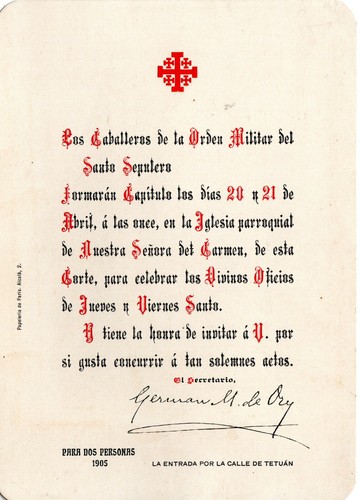 Los Caballeros de la Orden Militar del
Santo Sepulcro
Formarán Capítulo los días 20 y 21 de
Abril, á las once, en la Iglesia parroquial
de Nuestra Señora del Carmen, de esta
Corte, para celebrar los Divinos Oficios
de Jueves y Viernes Santo.
Y tiene la honra de invitar á V. por
si gusta concurrir á tan solemnes actos.
El Secretario,
German M. de Ory
PARA DOS PERSONAS
1905
LA ENTRADA POR LA CALLE DE TETUÁN
Papelería de París. Alcalá, 2.